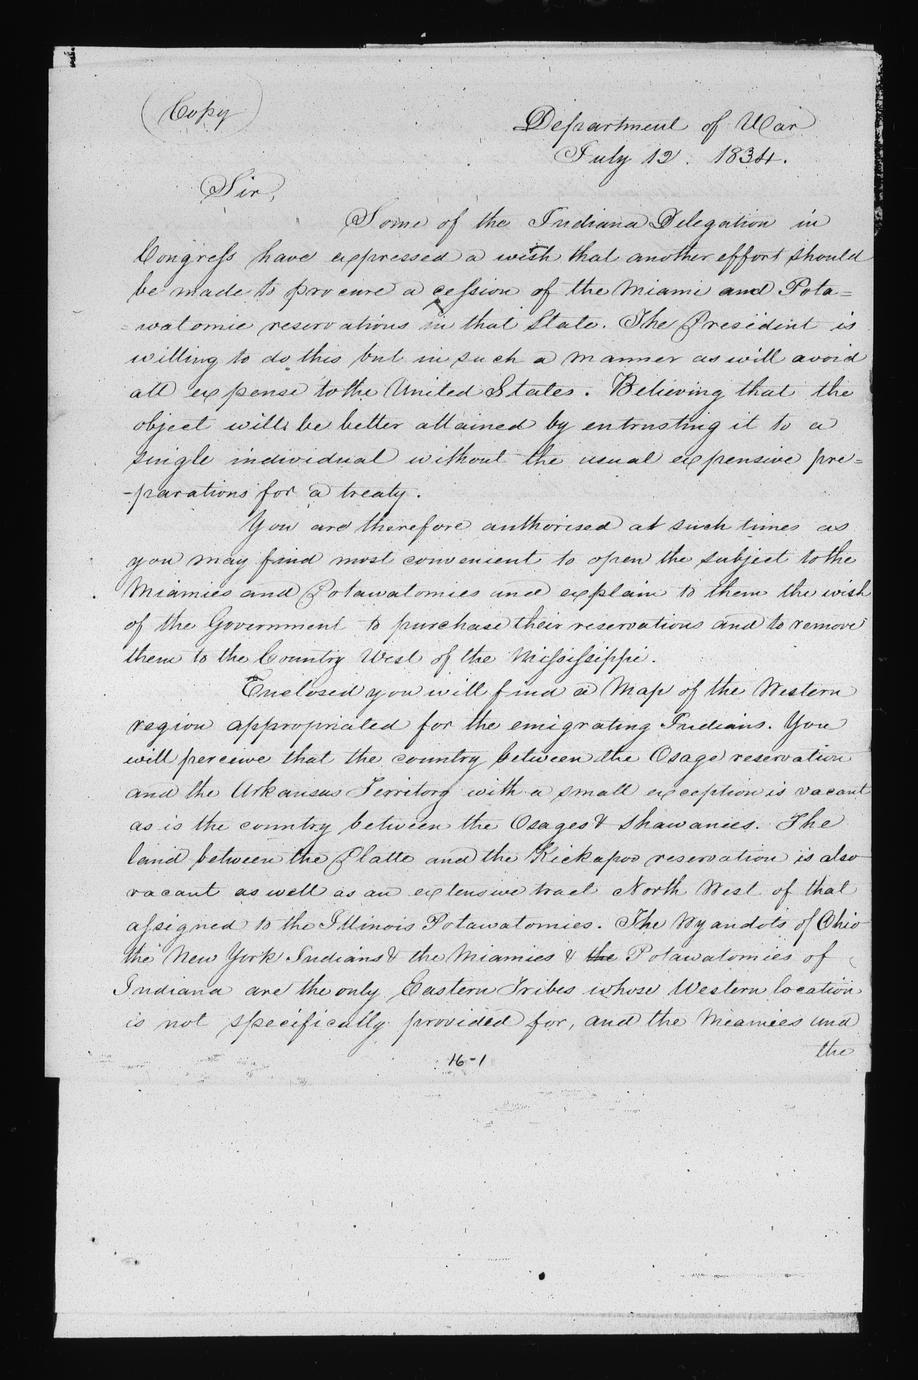 (Copy)
Department of War
July 12. 1834.
Sir,
Some of the Indiana Delegation in
Congress have expressed a wish that another effort should
be made to procure a cession of the Miami and Pota=
=watomie reservations in that State. The President is
willing to do this but in such a manner as will avoid
all expense to the United States. Believing that the
object will be better attained by entrusting it to a
single individual without the usual expensive pre=
-parations for a treaty.
You are therefore authorised at such times as
you may find most convenient to open the subject to the
Miamies and Potawatomies and explain to them the wish
of the Government to purchase their reservations and to remove
them to the Country West of the Mississippi.
Enclosed you will find a Map of the Western
region appropriated for the emigrating Indians. You
will perceive that the country between the Osage reservation
and the Arkansas Territory with a small exception is vacant
as is the country between the Osages & Shawanees. The
land between the Platte and the Kickapoo reservation is also
vacant as well as an extensive tract North West of that
assigned to the Illinois Potawatomies. The Wyandots of Ohio
the New York Indians & the Miamies & the Potawatomies of
Indiana are the only Eastern Tribes whose Western location
is not specifically provided for, and the Miamies and
the
16-1